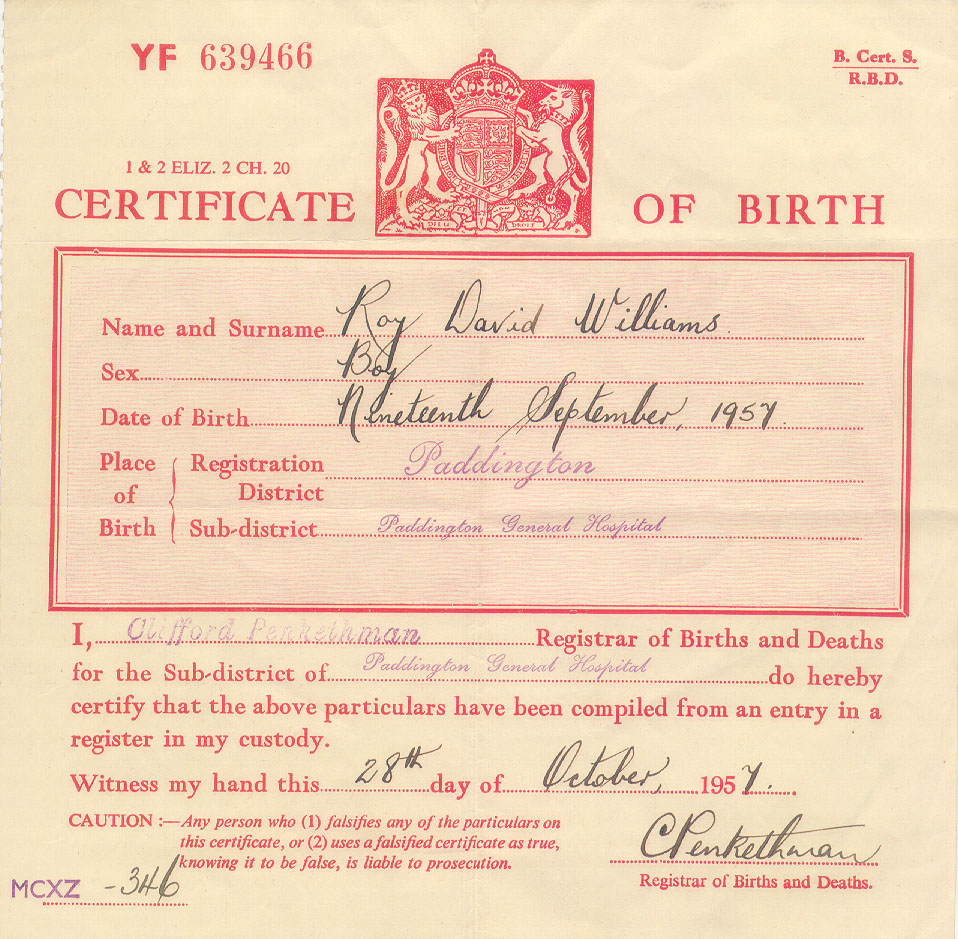 YF 639466
B. Cert. S.
R.B.D.
1 & 2 ELIZ. 2 CH. 20
CERTIFICATE OF BIRTH
DIEU ET MON DROIT
Name and Surname Roy David Williams
Sex Boy
Date of Birth Nineteenth September, 1957.
Place of Birth { Registration District Paddington
Sub-district Paddington General Hospital
I, Clifford Penkethman Registrar of Births and Deaths
for the Sub-district of Paddington General Hospital do hereby
certify that the above particulars have been compiled from an entry in a
register in my custody.
Witness my hand this 28th day of October, 1957.
CAUTION :—Any person who (1) falsifies any of the particulars on
this certificate, or (2) uses a falsified certificate as true,
knowing it to be false, is liable to prosecution.
CPenkethman
Registrar of Births and Deaths.
MCXZ -346